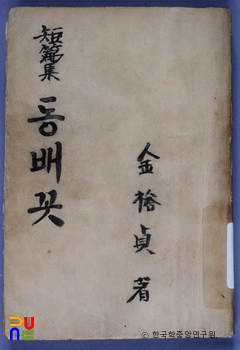 短篇集
동배꼿
金裕貞 著
PUNE
© 한국학중앙연구원